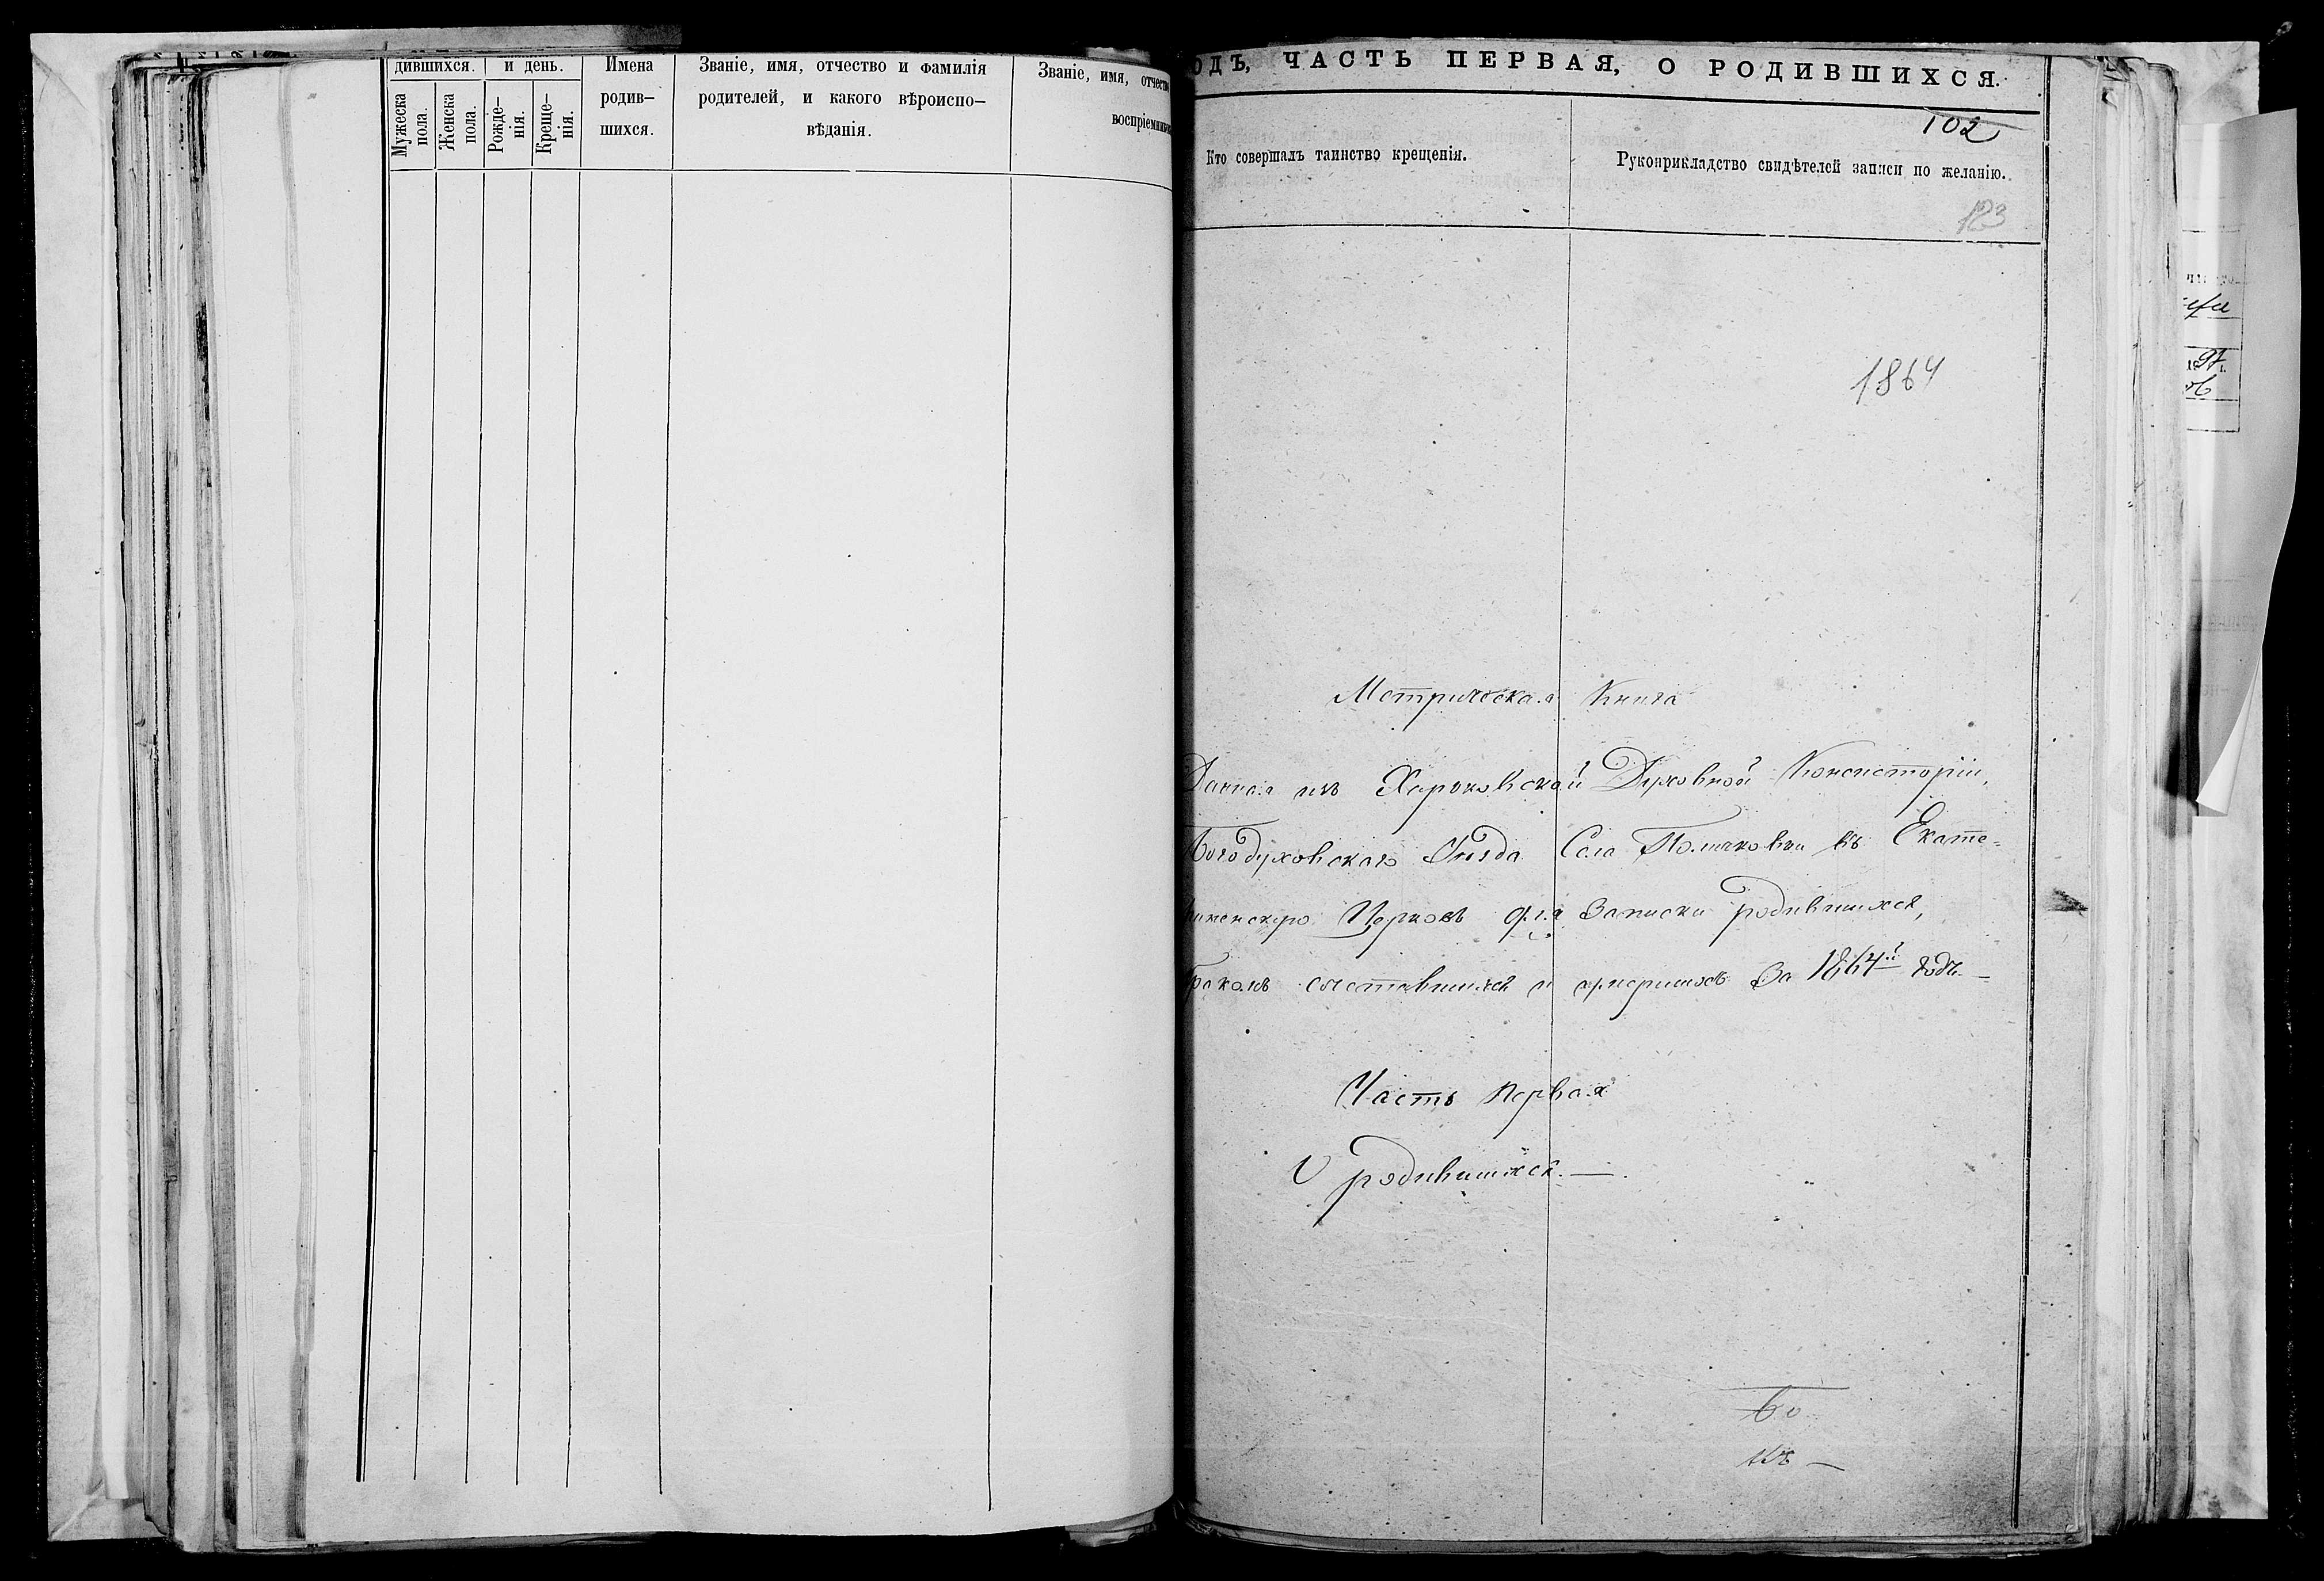 дившихся. и день. Имена Званіе, имя, отчество и фамилія Званіе, имя, отчество
родив- родителей, и какого вѣроиспо-
воспріемников
шихся. вѣданія.
Мужеска пола.
Женска пола.
Рожде-
нія.
Креще-
нія.
ОДЪ, ЧАСТЬ ПЕРВАЯ, О РОДИВШИХСЯ.
102
Кто совершалъ таинство крещенія. Рукоприкладство свидѣтелей записи по желанію.
123
1864
Метрическая Книга
Данная изъ Харьковской Духовной Консисторіи,
Богодуховского Уѣзда Села Полковой въ Екате-
рининскую Церковь для Записки родившихся,
бракомъ сочетавшихся и умершихъ За 1864й годъ
Часть первая
О родившихся.